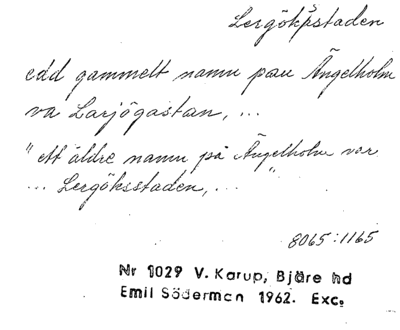 Lergöksstaden
edd gammelt namn pau Ängelholm
va Larjögastan, ...
"ett äldre namn på Ängelholm var
... Lergöksstaden, ... "
8065:1165
Nr 1029 V. Karup, Bjäre hd
Emil Söderman 1962. Exc.